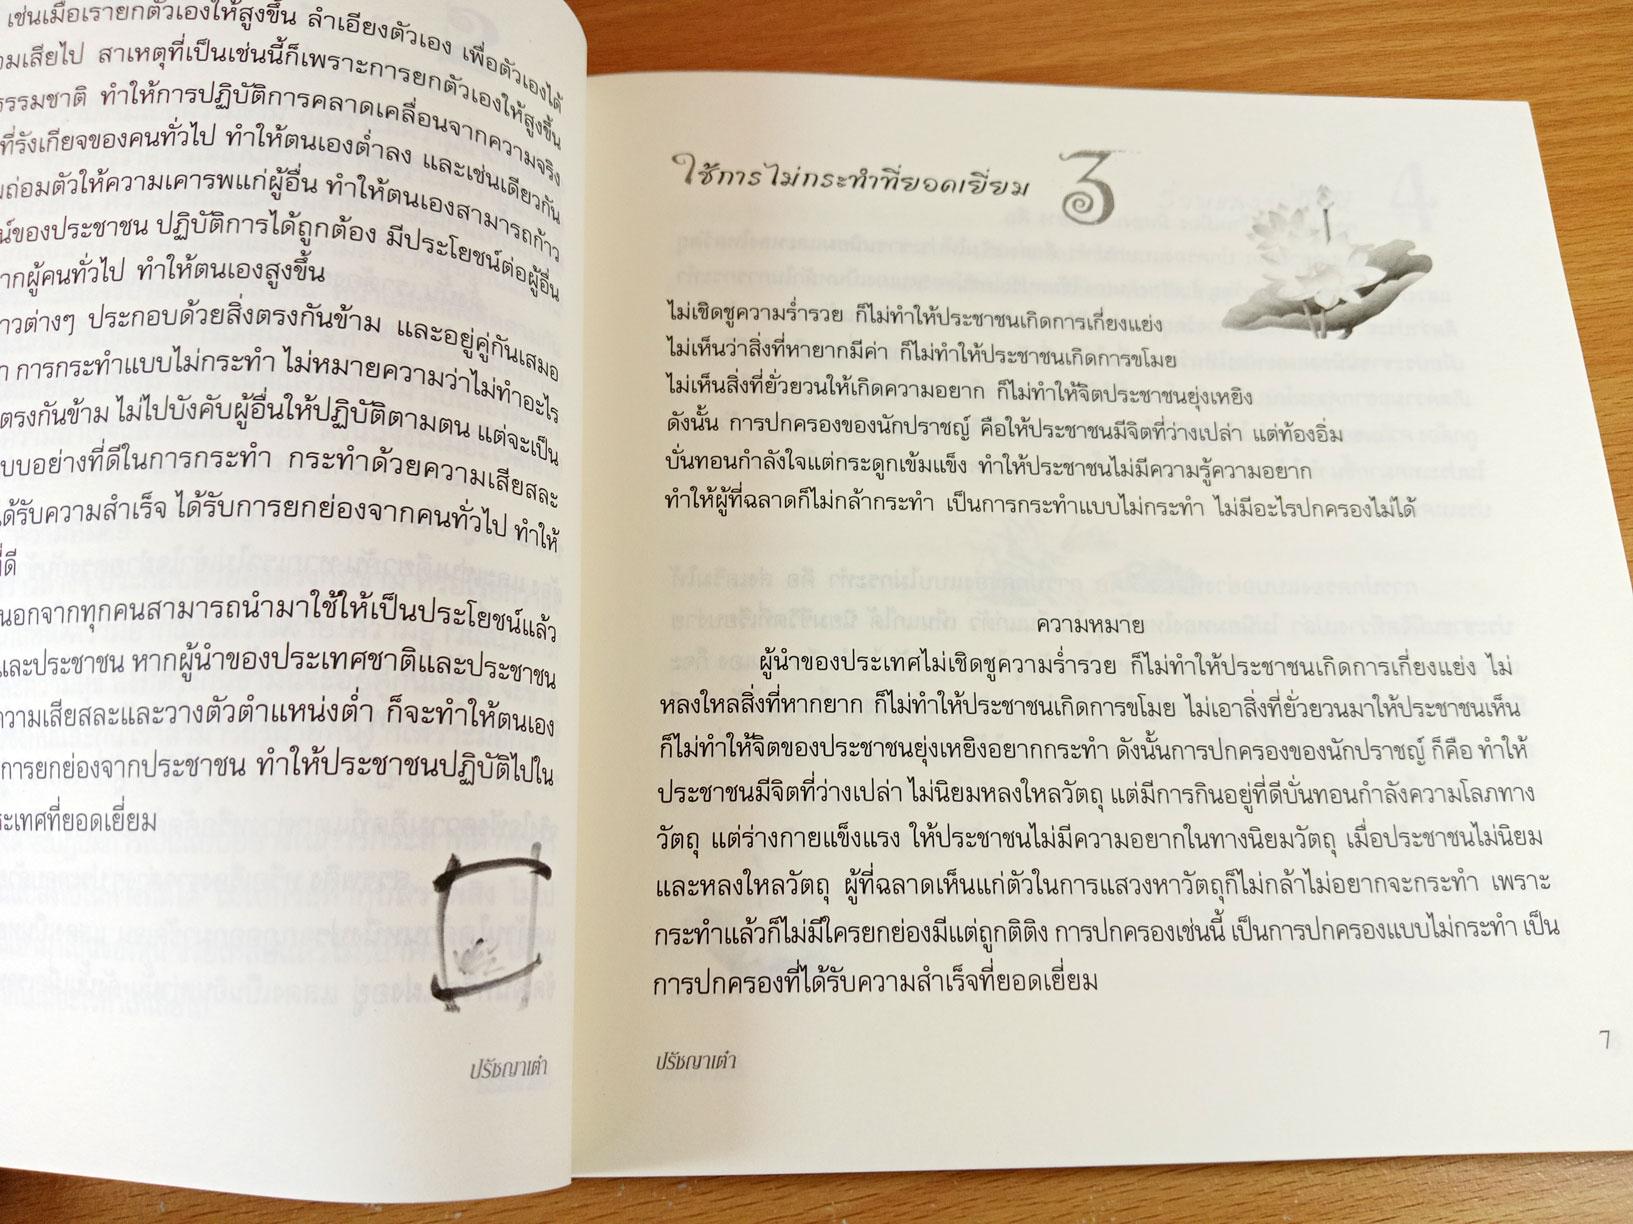 เช่นเมื่อเรายกตัวเองให้สูงขึ้น ลำเอียงตัวเอง เพื่อตัวเองได้
เสียไป สาเหตุที่เป็นเช่นนี้ก็เพราะการยกตัวเองให้สูงขึ้น
ธรรมชาติ ทำให้การปฏิบัติการคลาดเคลื่อนจากความจริง
ที่รังเกียจของคนทั่วไป ทำให้ตนเองต่ำลง และเช่นเดียวกัน
ถ่อมตัวให้ความเคารพแก่ผู้อื่น ทำให้ตนเองสามารถก้าว
ของประชาชน ปฏิบัติการได้ถูกต้อง มีประโยชน์ต่อผู้อื่น
ากผู้คนทั่วไป ทำให้ตนเองสูงขึ้น
าวต่างๆ ประกอบด้วยสิ่งตรงกันข้าม และอยู่คู่กันเสมอ
การกระทำแบบไม่กระทำ ไม่หมายความว่าไม่ทำอะไร
ตรงกันข้าม ไม่ไปบังคับผู้อื่นให้ปฏิบัติตามตน แต่จะเป็น
บบอย่างที่ดีในการกระทำ กระทำด้วยความเสียสละ
ได้รับความสำเร็จ ได้รับการยกย่องจากคนทั่วไป ทำให้
ที่ดี
นอกจากทุกคนสามารถนำมาใช้ให้เป็นประโยชน์แล้ว
และประชาชน หากผู้นำของประเทศชาติและประชาชน
ความเสียสละและวางตัวตำแหน่งต่ำ ก็จะทำให้ตนเอง
การยกย่องจากประชาชน ทำให้ประชาชนปฏิบัติไปใน
ระเทศที่ยอดเยี่ยม
ปรัชญาเต๋า
ใช้การไม่กระทำที่ยอดเยี่ยม 3
ไม่เชิดชูความร่ำรวย ก็ไม่ทำให้ประชาชนเกิดการเกี่ยงแย่ง
ไม่เห็นว่าสิ่งที่หายากมีค่า ก็ไม่ทำให้ประชาชนเกิดการขโมย
ไม่เห็นสิ่งที่ยั่วยวนให้เกิดความอยาก ก็ไม่ทำให้จิตประชาชนยุ่งเหยิง
ดังนั้น การปกครองของนักปราชญ์ คือให้ประชาชนมีจิตที่ว่างเปล่า แต่ท้องอิ่ม
บั่นทอนกำลังใจแต่กระดูกเข้มแข็ง ทำให้ประชาชนไม่มีความรู้ความอยาก
ทำให้ผู้ที่ฉลาดก็ไม่กล้ากระทำ เป็นการกระทำแบบไม่กระทำ ไม่มีอะไรปกครองไม่ได้
ความหมาย
ผู้นำของประเทศไม่เชิดชูความร่ำรวย ก็ไม่ทำให้ประชาชนเกิดการเกี่ยงแย่ง ไม่
หลงใหลสิ่งที่หากยาก ก็ไม่ทำให้ประชาชนเกิดการขโมย ไม่เอาสิ่งที่ยั่วยวนมาให้ประชาชนเห็น
ก็ไม่ทำให้จิตของประชาชนยุ่งเหยิงอยากกระทำ ดังนั้นการปกครองของนักปราชญ์ ก็คือ ทำให้
ประชาชนมีจิตที่ว่างเปล่า ไม่นิยมหลงใหลวัตถุ แต่มีการกินอยู่ที่ดีบั่นทอนกำลังความโลภทาง
วัตถุ แต่ร่างกายแข็งแรง ให้ประชาชนไม่มีความอยากในทางนิยมวัตถุ เมื่อประชาชนไม่นิยม
และหลงใหลวัตถุ ผู้ที่ฉลาดเห็นแก่ตัวในการแสวงหาวัตถุก็ไม่กล้าไม่อยากจะกระทำ เพราะ
กระทำแล้วก็ไม่มีใครยกย่องมีแต่ถูกติติง การปกครองเช่นนี้ เป็นการปกครองแบบไม่กระทำ เป็น
การปกครองที่ได้รับความสำเร็จที่ยอดเยี่ยม
ปรัชญาเต๋า
7